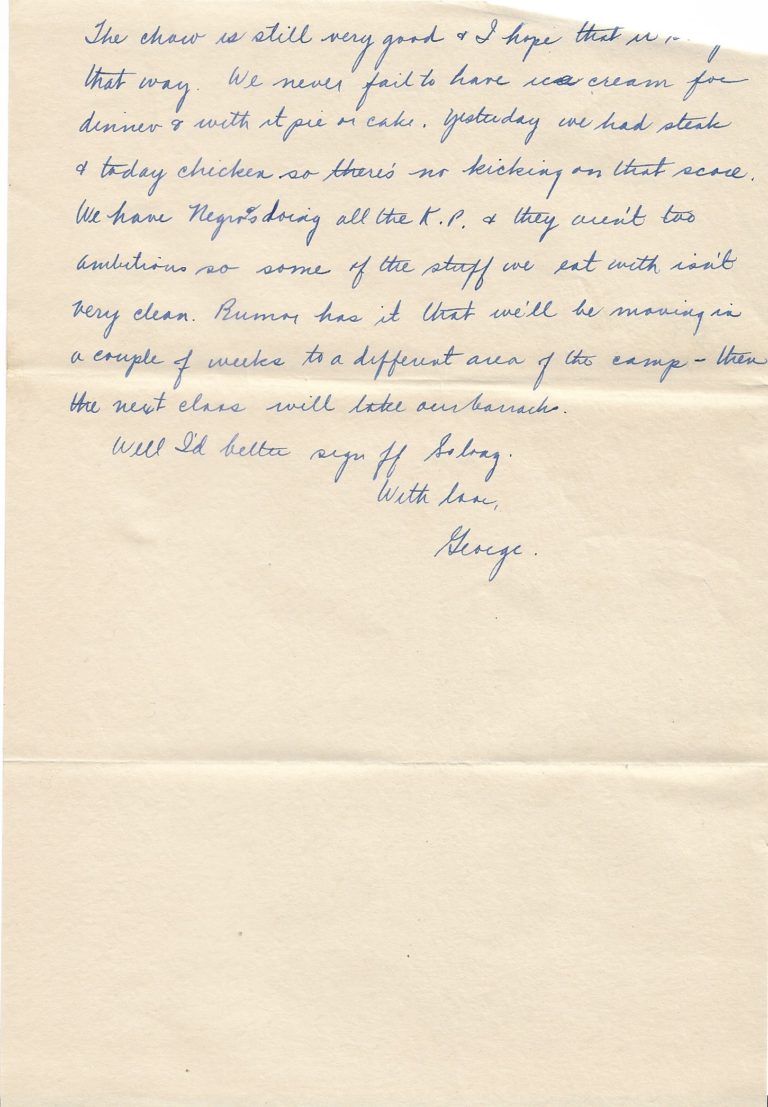 The chow is still very good & I hope that it
that way. We never fail to have ice cream for
dinner & with it pie or cake. Yesterday we had steak
& today chicken so there's no kicking on that score.
We have Negros doing all the K.P. & they aren't too
ambitious so some of the stuff we eat with isn't
very clean. Rumor has it that we'll be moving in
a couple of weeks to a different area of the camp - then
the next class will take our barracks.
Well I'd better sign off So long.
With love,
George.